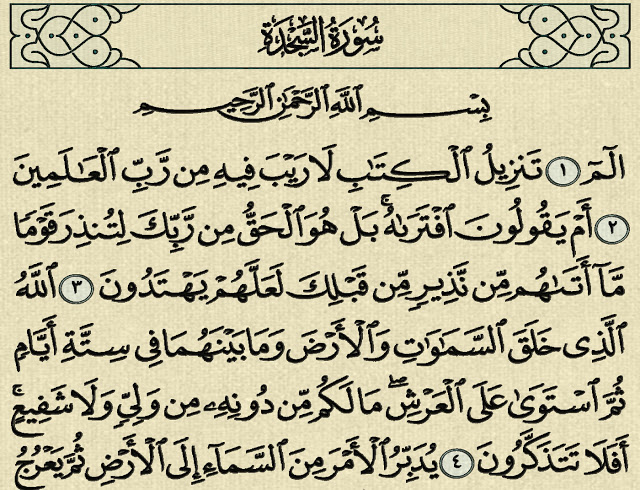 سُورَةُ السَّجْدَةِ
بِسْمِ اللَّهِ الرَّحْمَٰنِ الرَّحِيمِ
الٓمٓ ١ تَنزِيلُ ٱلْكِتَٰبِ لَا رَيْبَ فِيهِ مِن رَّبِّ ٱلْعَٰلَمِينَ
٢ أَمْ يَقُولُونَ ٱفْتَرَىٰهُ ۚ بَلْ هُوَ ٱلْحَقُّ مِن رَّبِّكَ لِتُنذِرَ قَوْمًا
مَّآ أَتَىٰهُم مِّن نَّذِيرٍ مِّن قَبْلِكَ لَعَلَّهُمْ يَهْتَدُونَ ٣ ٱللَّهُ
ٱلَّذِى خَلَقَ ٱلسَّمَٰوَٰتِ وَٱلْأَرْضَ وَمَا بَيْنَهُمَا فِى سِتَّةِ أَيَّامٍ
ثُمَّ ٱسْتَوَىٰ عَلَى ٱلْعَرْشِ ۖ مَا لَكُم مِّن دُونِهِۦ مِن وَلِىٍّ وَلَا شَفِيعٍ ۚ
أَفَلَا تَتَذَكَّرُونَ ٤ يُدَبِّرُ ٱلْأَمْرَ مِنَ ٱلسَّمَآءِ إِلَى ٱلْأَرْضِ ثُمَّ يَعْرُجُ